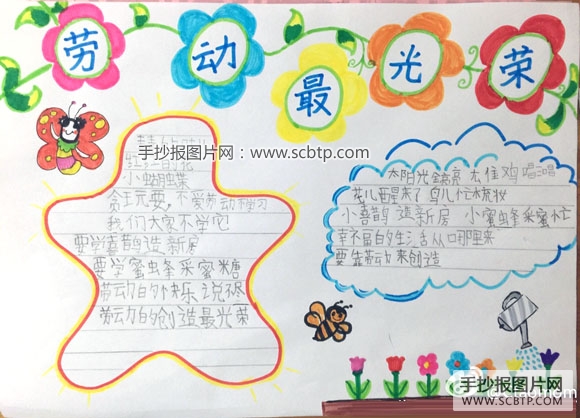 劳动最光荣
手抄报图片网：www.scbtp.com
红红的花
小蝴蝶
贪玩耍，不爱劳动学习
我们大家不学它
要学喜鹊造新房
要学蜜蜂采蜜糖
劳动的快乐说尽
劳动的创造最光荣
太阳光金亮 鸡唱唱
花儿醒来了 鸟儿忙梳妆
小喜鹊造新房 小蜜蜂采蜜忙
幸福的生活从哪里来
要靠劳动来创造
手抄报图片网
WWW.SCBTP.COM